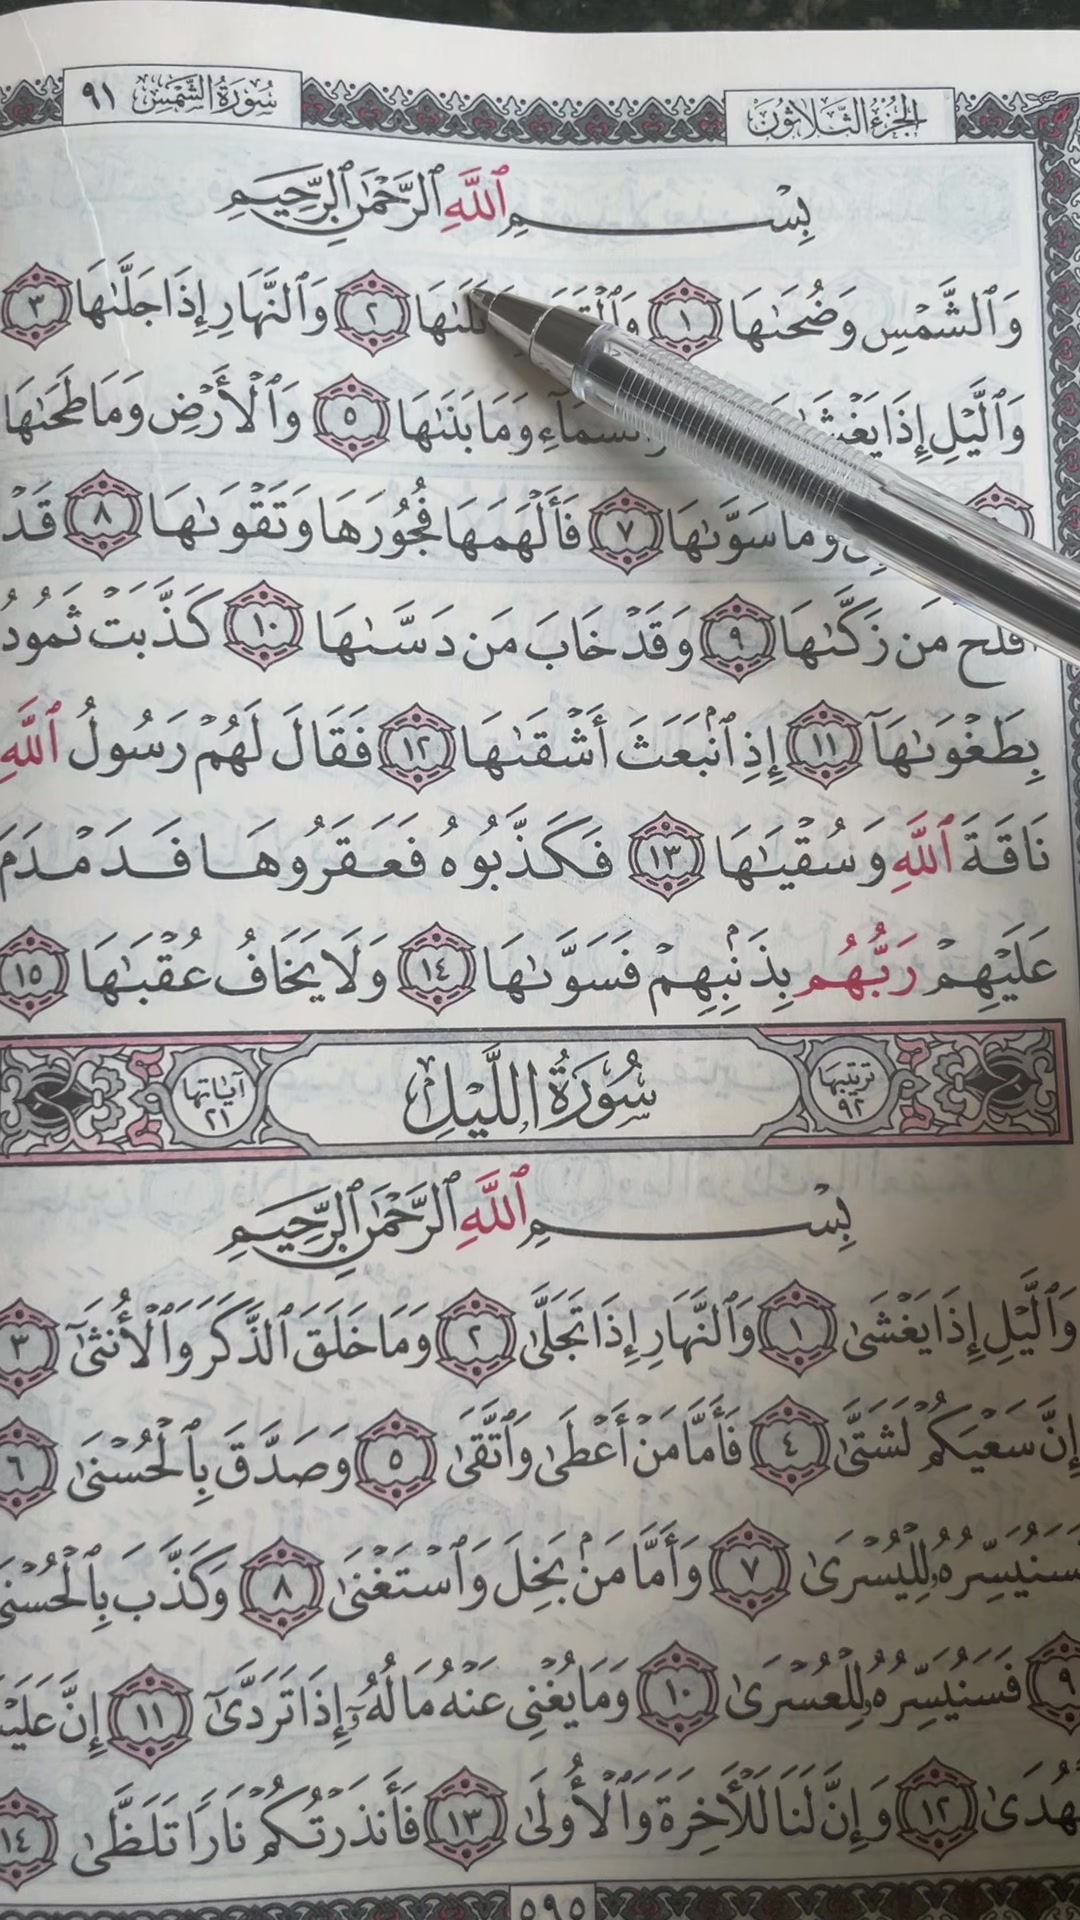 سُورَةُ الشَّمْسِ ٩١
الجُزْءُ الثَّلَاثُونَ
بِسْمِ ٱللَّهِ ٱلرَّحْمَٰنِ ٱلرَّحِيمِ
وَٱلشَّمْسِ وَضُحَىٰهَا ١ تَلَىٰهَا ٢ وَٱلنَّهَارِ إِذَا جَلَّىٰهَا ٣
وَٱلَّيْلِ إِذَا وَمَا بَنَىٰهَا ٥ وَٱلْأَرْضِ وَمَا طَحَىٰهَا
وَمَا سَوَّىٰهَا ٧ فَأَلْهَمَهَا فُجُورَهَا وَتَقْوَىٰهَا ٨ قَدْ
أَفْلَحَ مَن زَكَّىٰهَا ٩ وَقَدْ خَابَ مَن دَسَّىٰهَا ١٠ كَذَّبَتْ ثَمُودُ
بِطَغْوَىٰهَآ ١١ إِذِ ٱنۢبَعَثَ أَشْقَىٰهَا ١٢ فَقَالَ لَهُمْ رَسُولُ ٱللَّهِ
نَاقَةَ ٱللَّهِ وَسُقْيَٰهَا ١٣ فَكَذَّبُوهُ فَعَقَرُوهَا فَدَمْدَمَ
عَلَيْهِمْ رَبُّهُم بِذَنۢبِهِمْ فَسَوَّىٰهَا ١٤ وَلَا يَخَافُ عُقْبَٰهَا ١٥
ترتيبها ٩٢ سُورَةُ اللَّيْلِ آياتها ٢١
بِسْمِ ٱللَّهِ ٱلرَّحْمَٰنِ ٱلرَّحِيمِ
وَٱلَّيْلِ إِذَا يَغْشَىٰ ١ وَٱلنَّهَارِ إِذَا تَجَلَّىٰ ٢ وَمَا خَلَقَ ٱلذَّكَرَ وَٱلْأُنثَىٰٓ ٣
إِنَّ سَعْيَكُمْ لَشَتَّىٰ ٤ فَأَمَّا مَنْ أَعْطَىٰ وَٱتَّقَىٰ ٥ وَصَدَّقَ بِٱلْحُسْنَىٰ ٦
فَسَنُيَسِّرُهُۥ لِلْيُسْرَىٰ ٧ وَأَمَّا مَنۢ بَخِلَ وَٱسْتَغْنَىٰ ٨ وَكَذَّبَ بِٱلْحُسْنَىٰ
٩ فَسَنُيَسِّرُهُۥ لِلْعُسْرَىٰ ١٠ وَمَا يُغْنِى عَنْهُ مَالُهُۥٓ إِذَا تَرَدَّىٰٓ ١١ إِنَّ
١٢ وَإِنَّ لَنَا لَلْـَٔاخِرَةَ وَٱلْأُولَىٰ ١٣ فَأَنذَرْتُكُمْ نَارًا تَلَظَّىٰ ١٤
٥٩٥